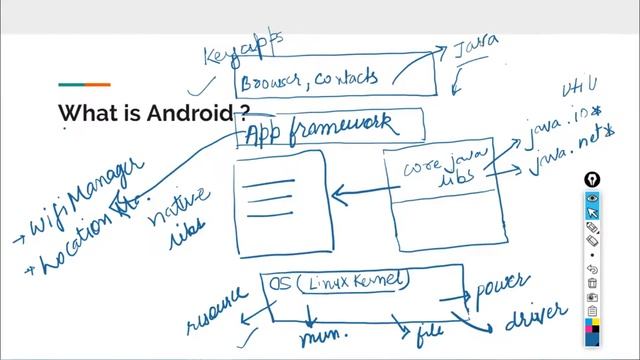 Key apps
Java
Browser, contacts
What is Android ?
App framework
util
java.io*
java.net*
core java
libs
→ Wifi Manager
→ Location
native
libs
OS (Linux Kernel)
resource
mem.
file
power
driver